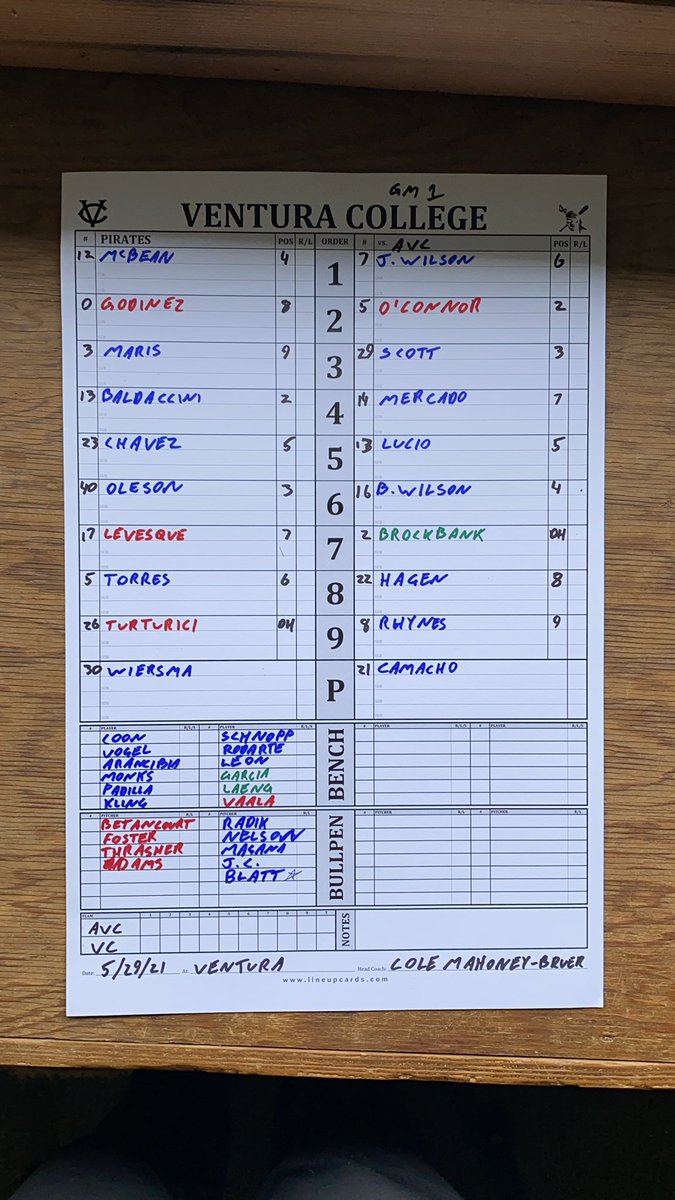 GM 1
VENTURA COLLEGE
# PIRATES POS R/L ORDER # vs. AVC POS R/L
12 McBEAN 4 1 7 J. WILSON 6
0 GODINEZ 8 2 5 O'CONNOR 2
3 MARIS 9 3 29 SCOTT 3
13 BALDACCINI 2 4 14 MERCADO 7
23 CHAVEZ 5 5 13 LUCIO 5
40 OLESON 3 6 16 B. WILSON 4
17 LEVESQUE 7 7 2 BROCKBANK DH
5 TORRES 6 8 22 HAGEN 8
26 TURTURICI DH 9 8 RHYNES 9
30 WIERSMA P 21 CAMACHO
# PLAYER R/L/S # PLAYER R/L/S BENCH # PLAYER R/L/S # PLAYER R/L/S
COON SCHNOPP
VOGEL RODARTE
ARANCIBIA LEON
MONKS GARCIA
PADILLA LAENG
KLING VAALA
# PITCHER R/L # PITCHER R/L BULLPEN # PITCHER R/L # PITCHER R/L
BETANCOURT RADIK
FOSTER NELSON
THRASHER MAGANA
ADAMS J.C.
BLATT ☆
TEAM 1 2 3 4 5 6 7 8 9 T NOTES
AVC
VC
Date: 5/29/21 At: VENTURA Head Coach: COLE MAHONEY-BRUER
www.lineupcards.com